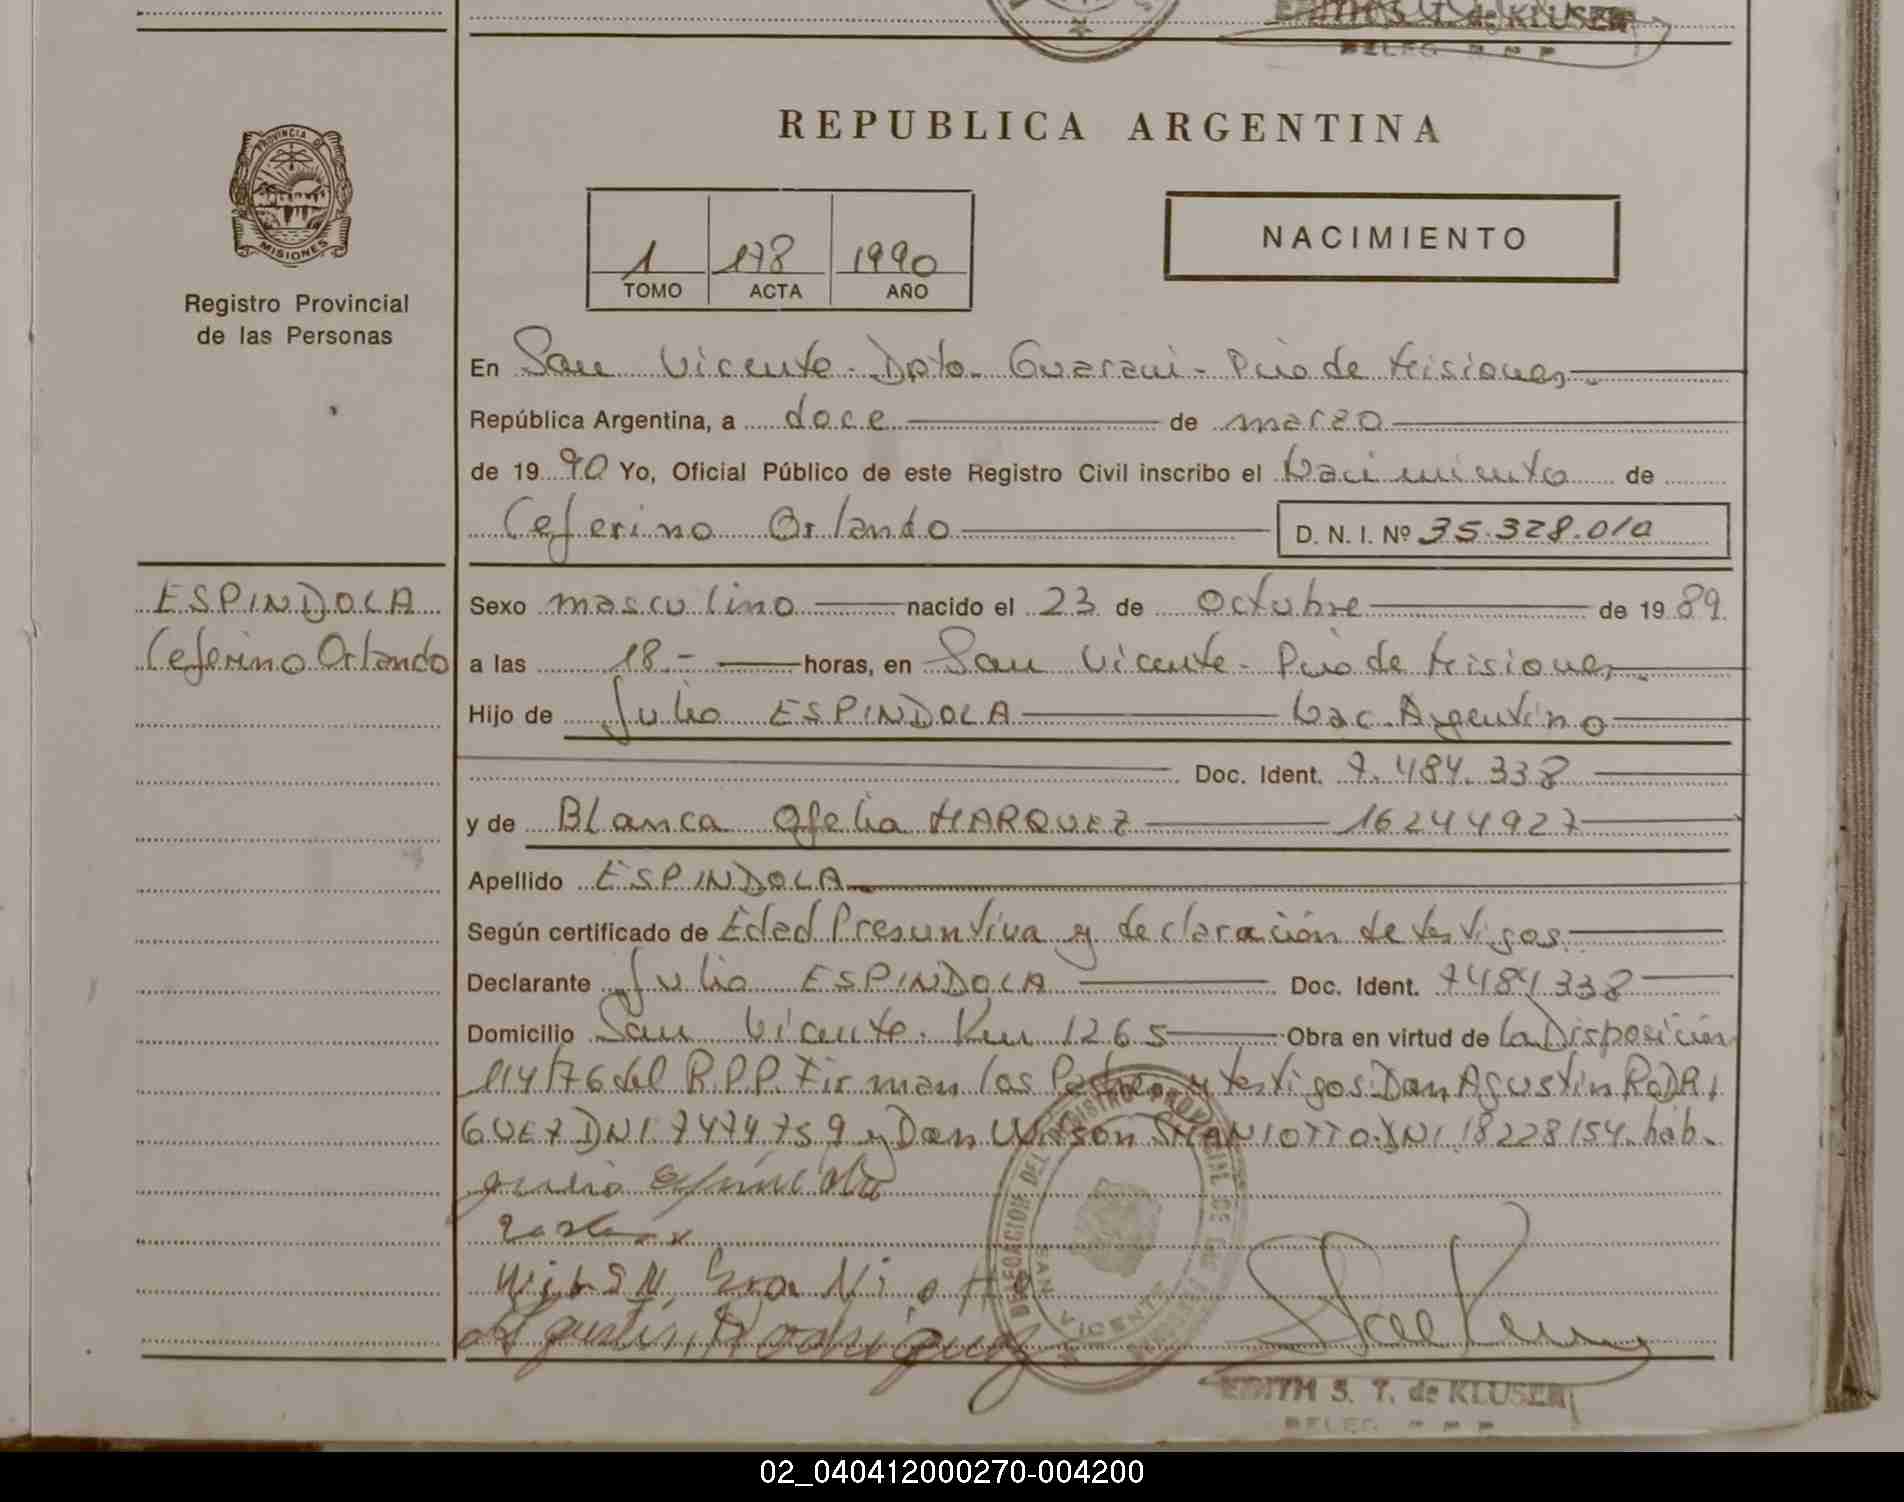 EDITH S. T. de KLUSER
DELEG. R P P
REPUBLICA ARGENTINA
PROVINCIA DE MISIONES
Registro Provincial
de las Personas
1 178 1990
TOMO ACTA AÑO
NACIMIENTO
En San Vicente - Dpto. Guarani - Pcia de Misiones
República Argentina, a doce de marzo
de 19 90 Yo, Oficial Público de este Registro Civil inscribo el Nacimiento de
Ceferino Orlando D. N. I. Nº 35.328.010
ESPINDOLA
Ceferino Orlando
Sexo masculino nacido el 23 de Octubre de 19 89
a las 18.- horas, en San Vicente - Pcia de Misiones
Hijo de Julio ESPINDOLA Nac. Argentino
Doc. Ident. 7.484.338
y de Blanca Ofelia MARQUEZ 16244927
Apellido ESPINDOLA
Según certificado de Edad Presuntiva y declaración de testigos
Declarante Julio ESPINDOLA Doc. Ident. 7484338
Domicilio San Vicente. Km 1265 Obra en virtud de la Disposición
114/76 del R.P.P. Firman los Padres y testigos: Don Agustin RODRI
GUEZ DNI. 7474759 y Don Wilson DNI. 18228154. hab.
Julio Espindola
Agustin Rodriguez
DELEGACION DEL REGISTRO PROVINCIAL DE LAS PERSONAS
SAN VICENTE
EDITH S. T. de KLUSER
DELEG. R P P
02_040412000270-004200